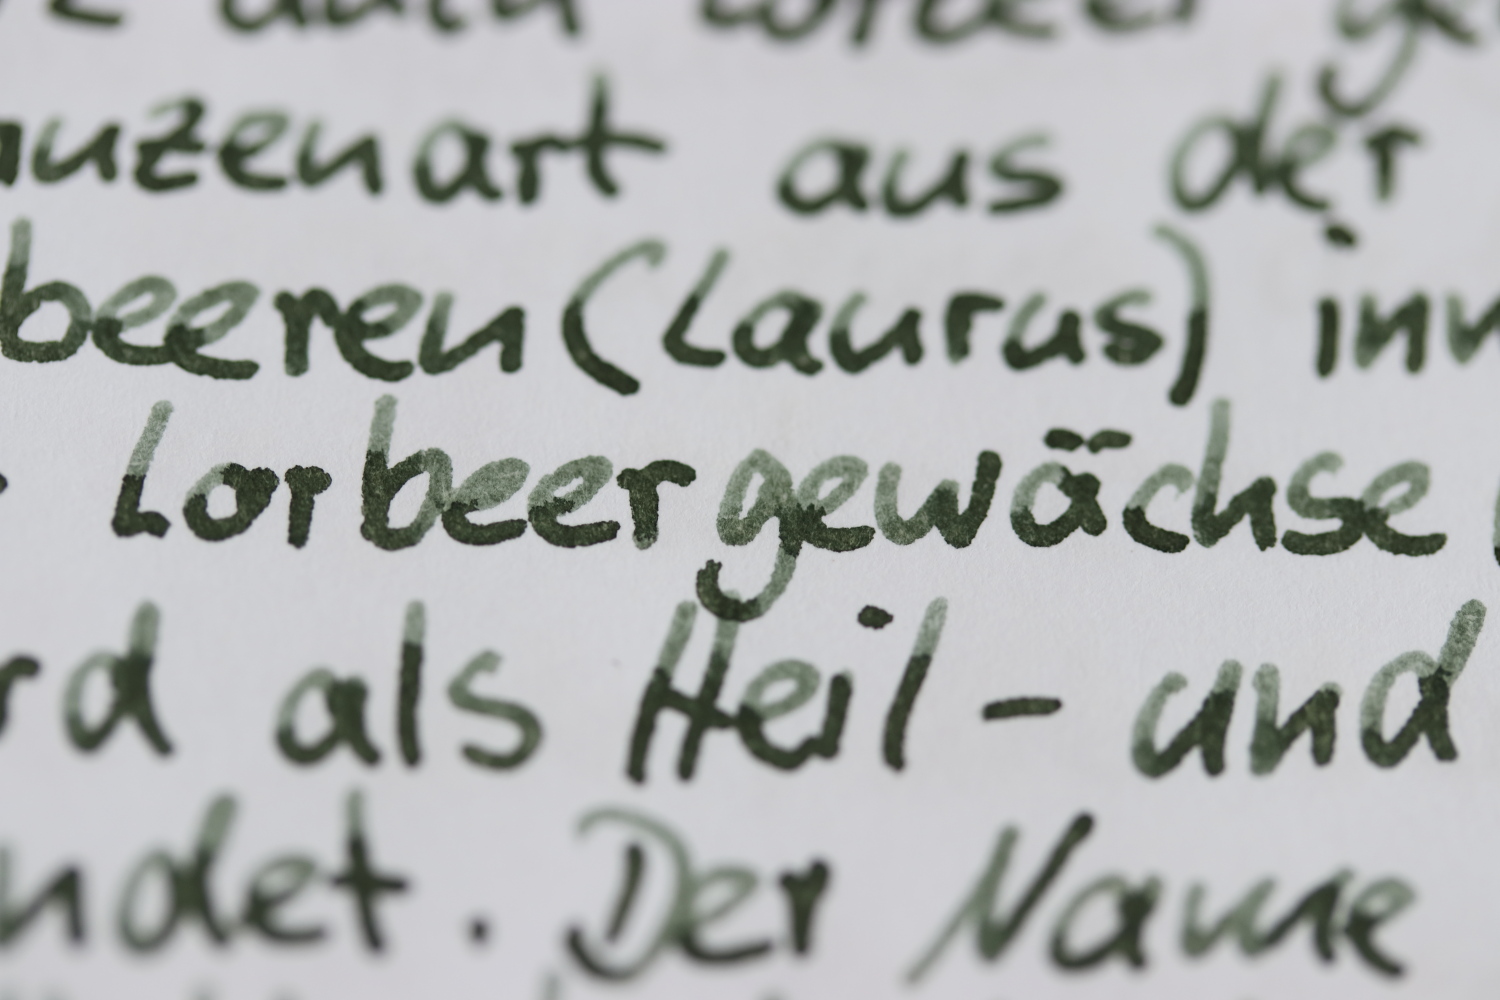 auch Lorbeer ge
anzenart aus der
beeren (Laurus) inn
Lorbeergewächse
rd als Heil- und
ndet. Der Name